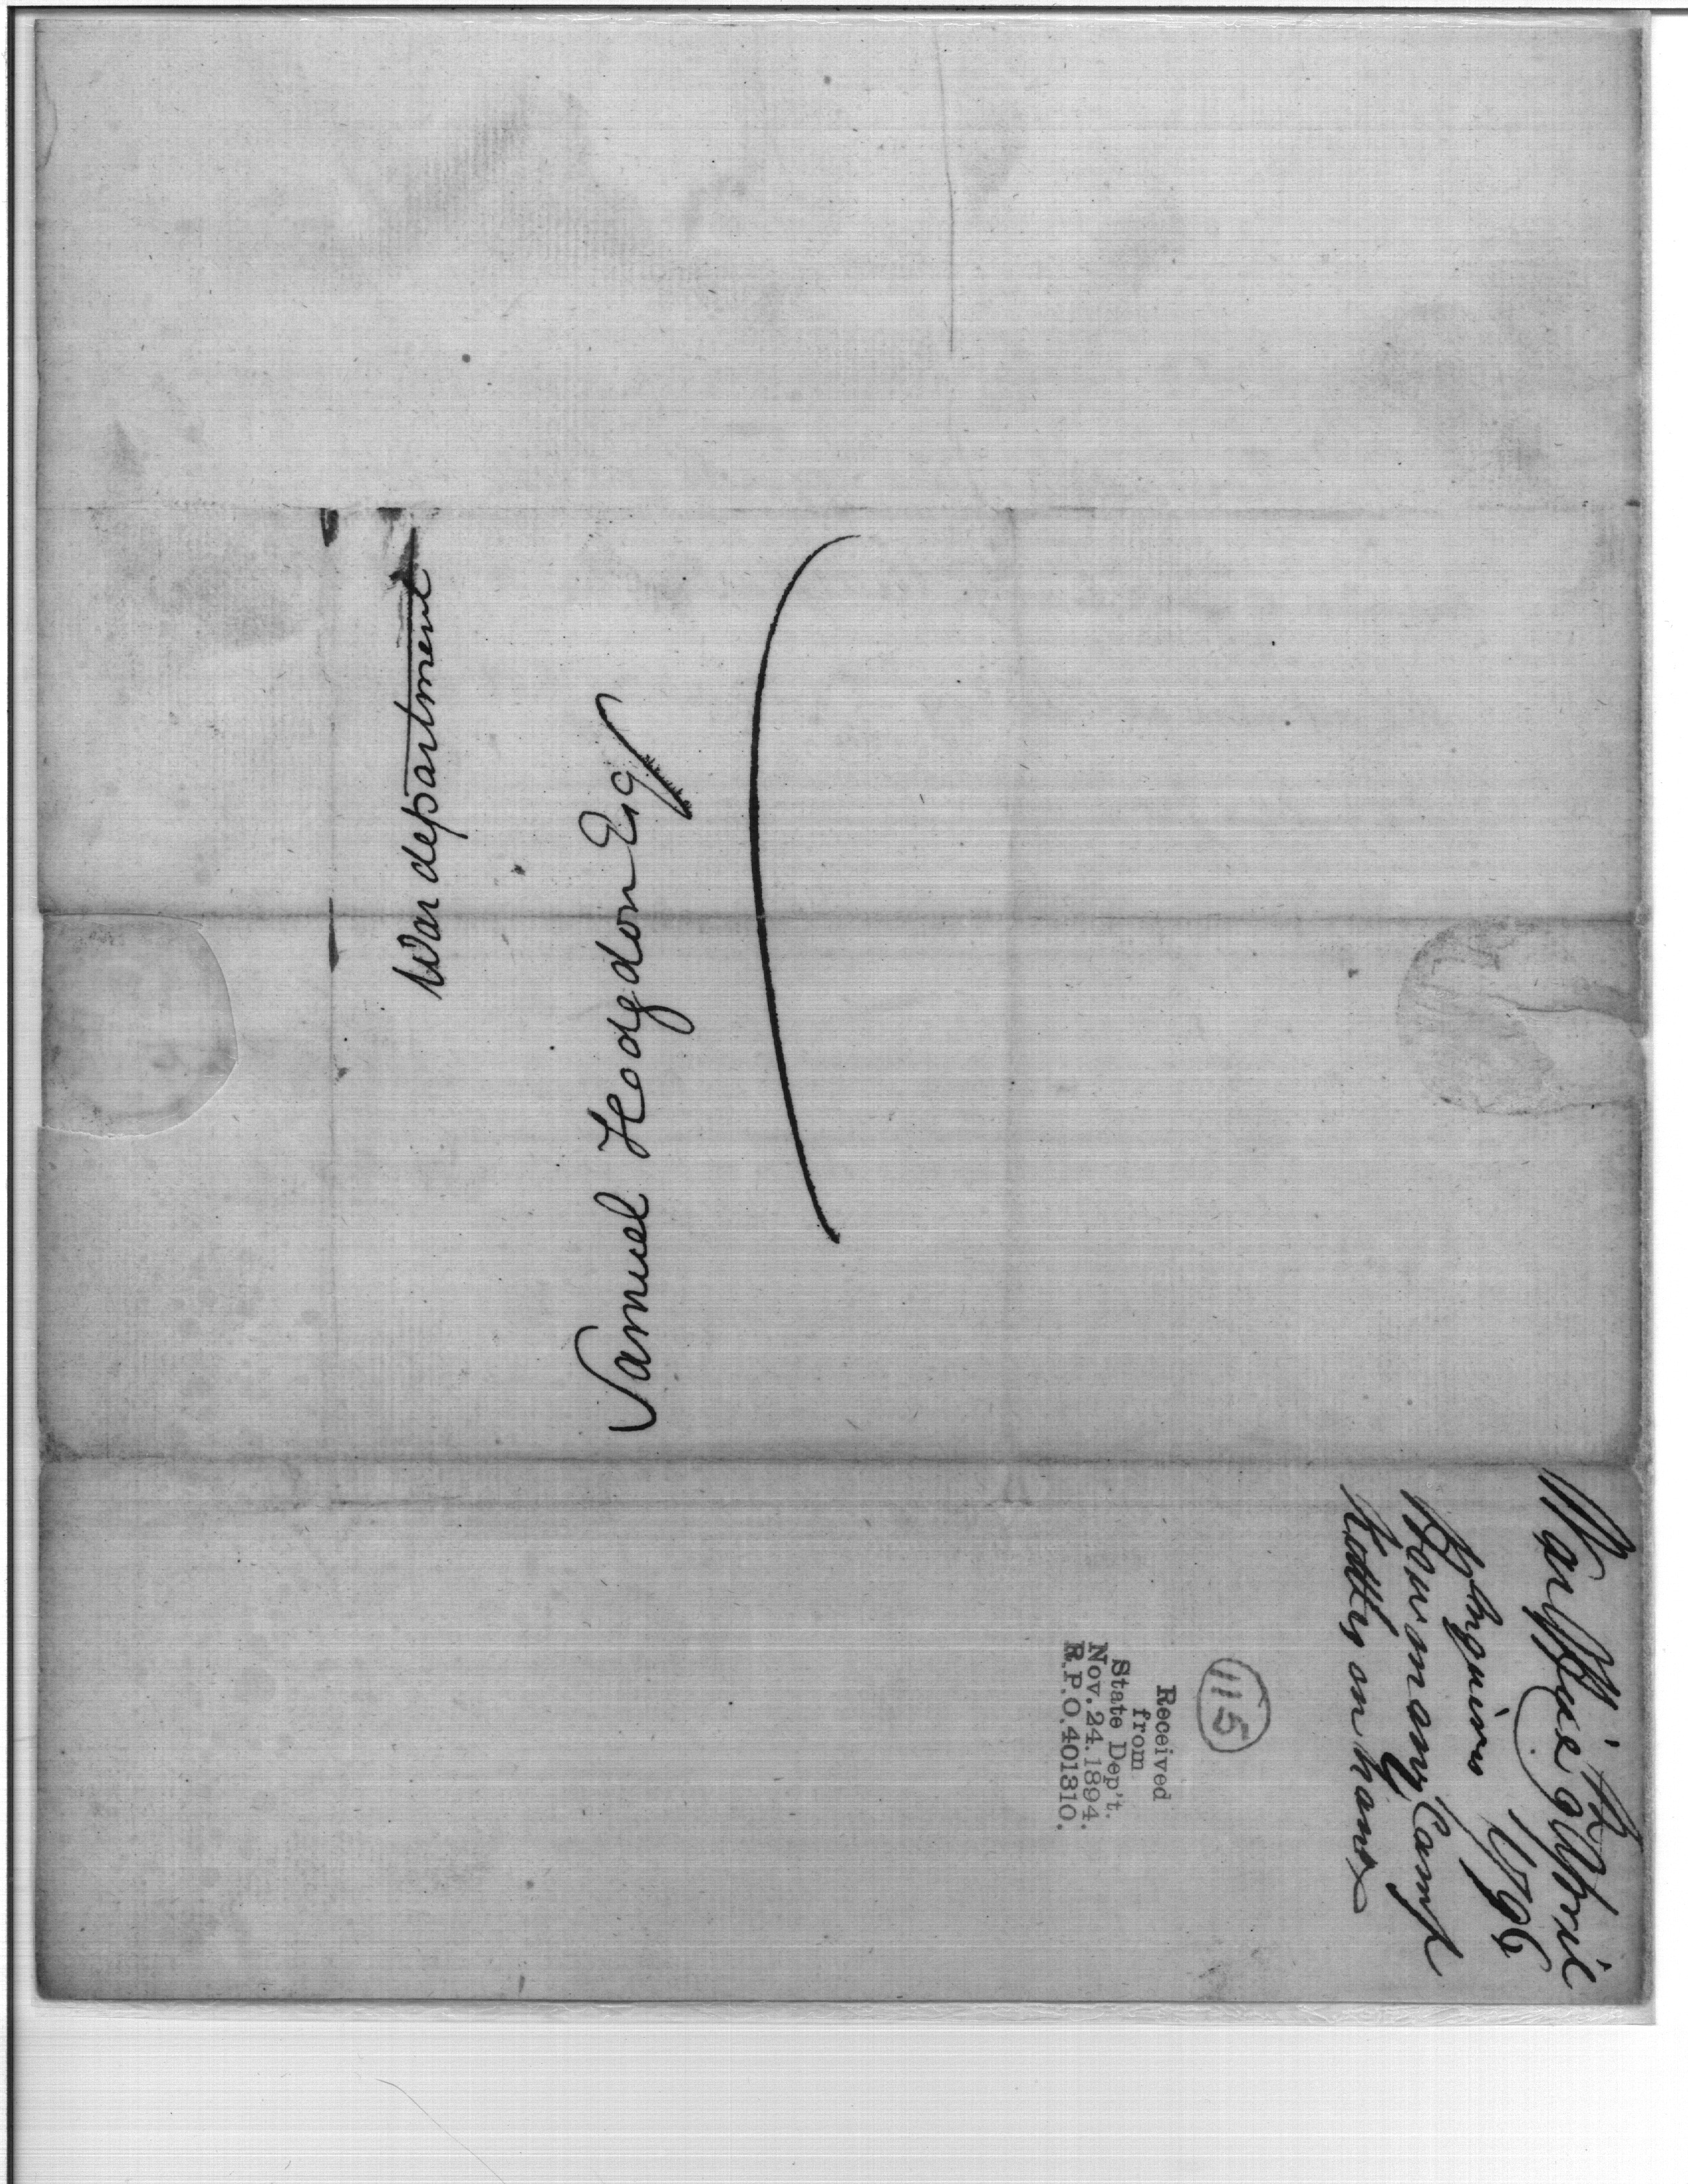 War department
Samuel Hodgdon Esq
War Office 9th April
1796
Enquires
How many Camp
Kettles on hand
115
Received
from
State Dep't.
Nov.24.1894.
R.P.O.401310.